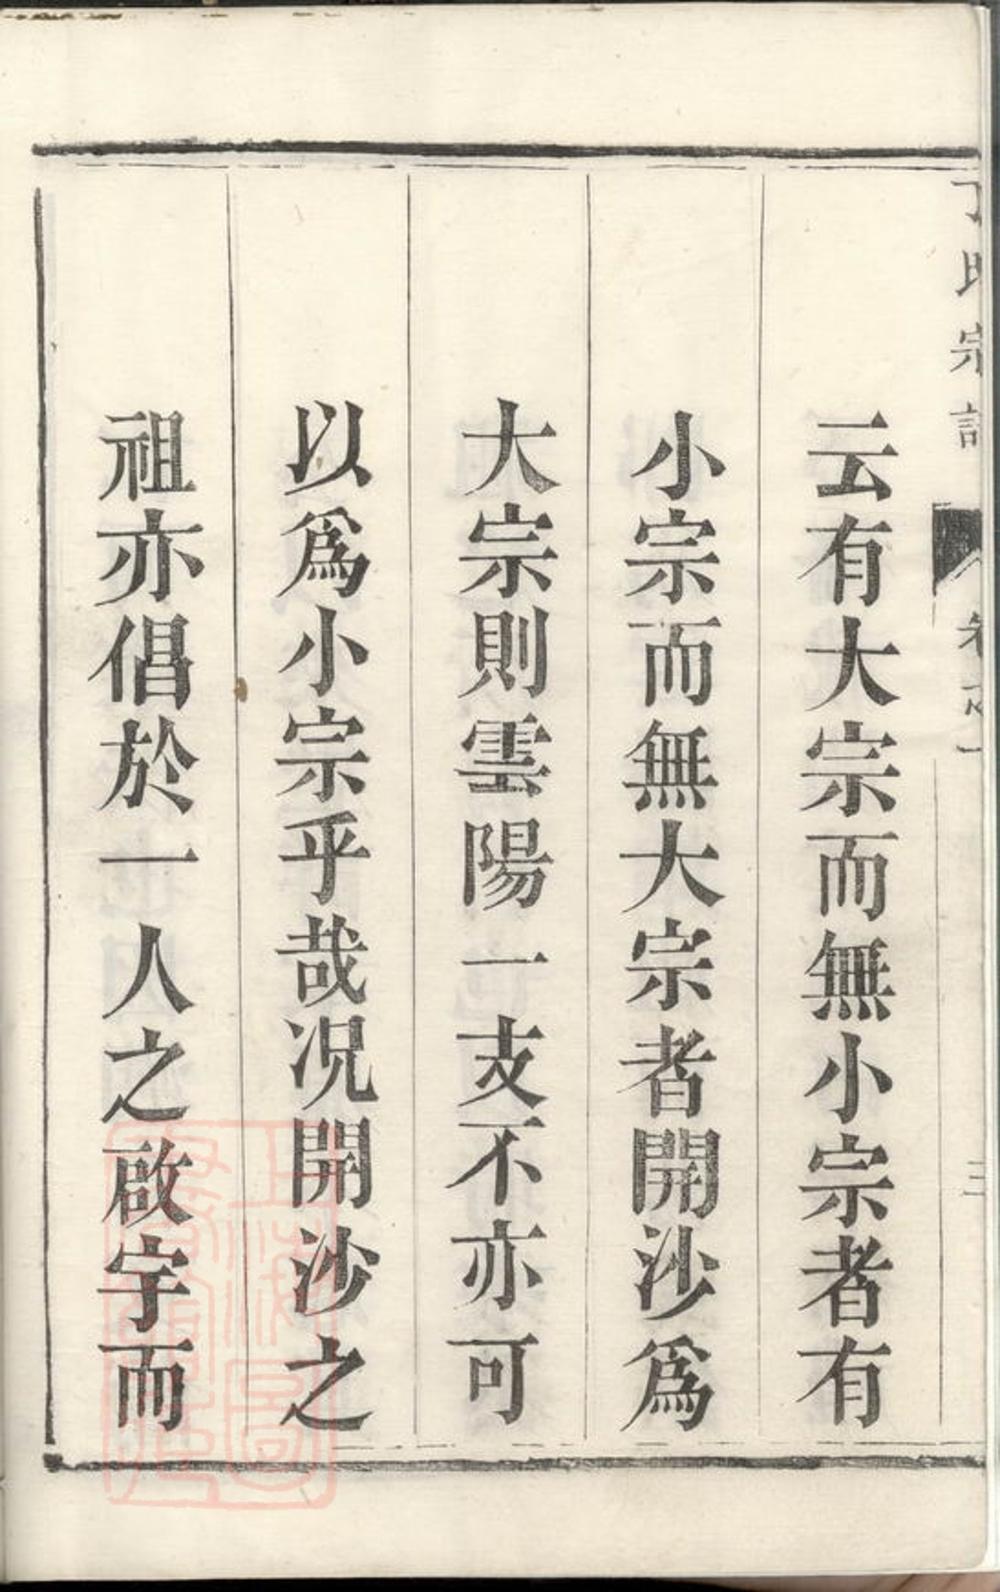 云有大宗而無小宗者有
小宗而無大宗者開沙爲
大宗則雲陽一支不亦可
以爲小宗乎哉況開沙之
祖亦倡於一人之啟宇而